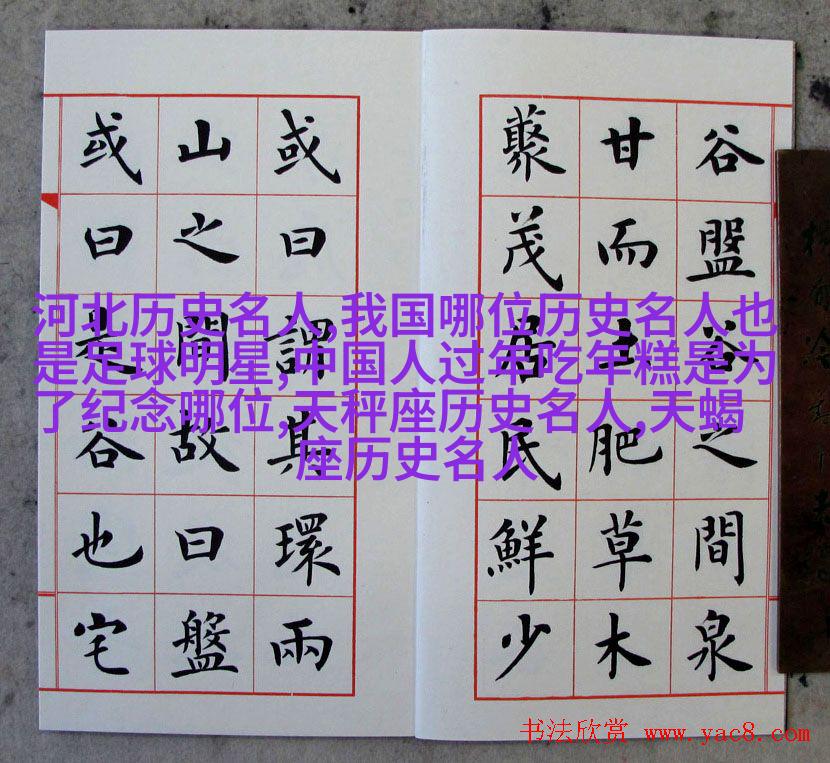 谷盤谷之間泉
甘而土肥草木
藂茂居民鮮少
或曰謂其環兩
山之間故曰盤
或曰是谷也宅
河北历史名人,我国哪位历史名人也
是足球明星,中国人过年吃年糕是为
了纪念哪位,天秤座历史名人,天蝎
座历史名人
书法欣赏 www.yac8.com